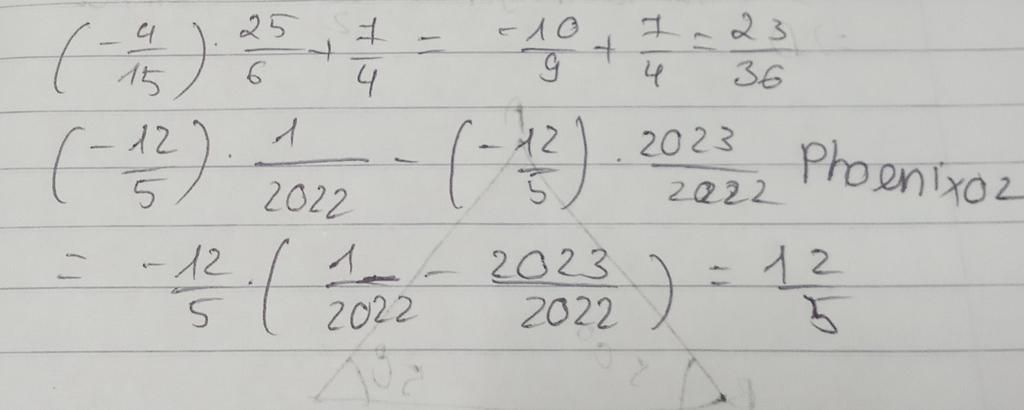 (-4/15) · 25/6 + 7/4 = -10/9 + 7/4 = 23/36
(-12/5) · 1/2022 - (-12/5) · 2023/2022 Phoenix02
= -12/5 · (1/2022 - 2023/2022) = 12/5